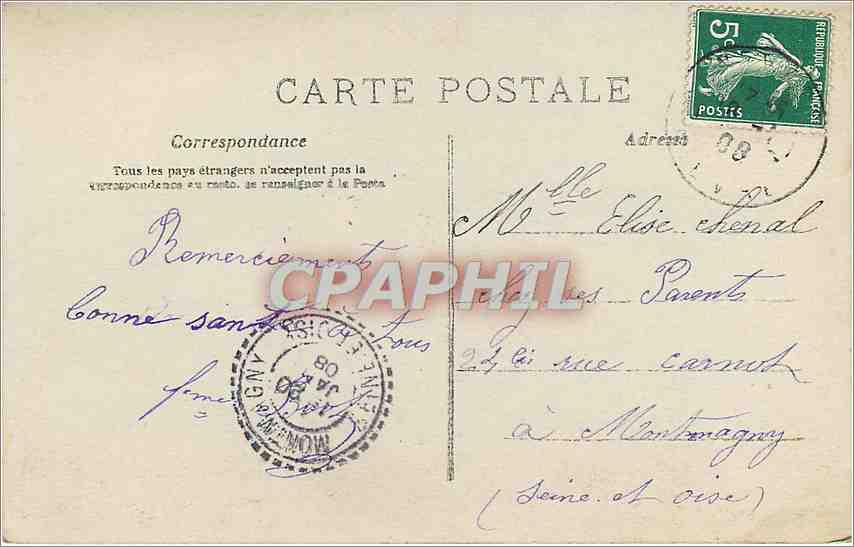 CARTE POSTALE
Correspondance
Tous les pays étrangers n'acceptent pas la
correspondance au recto. se renseigner à la Poste
Remerciements
Bonne santé a tous
fme
Adresse
Mlle Elise chenal
chez ses Parents
24 bis rue carnot
à Montmagny
(Seine et oise)
5c
REPUBLIQUE FRANÇAISE
POSTES
08
MONTMAGNY
SEINE-ET-OISE
20
JA
08
CPAPHIL